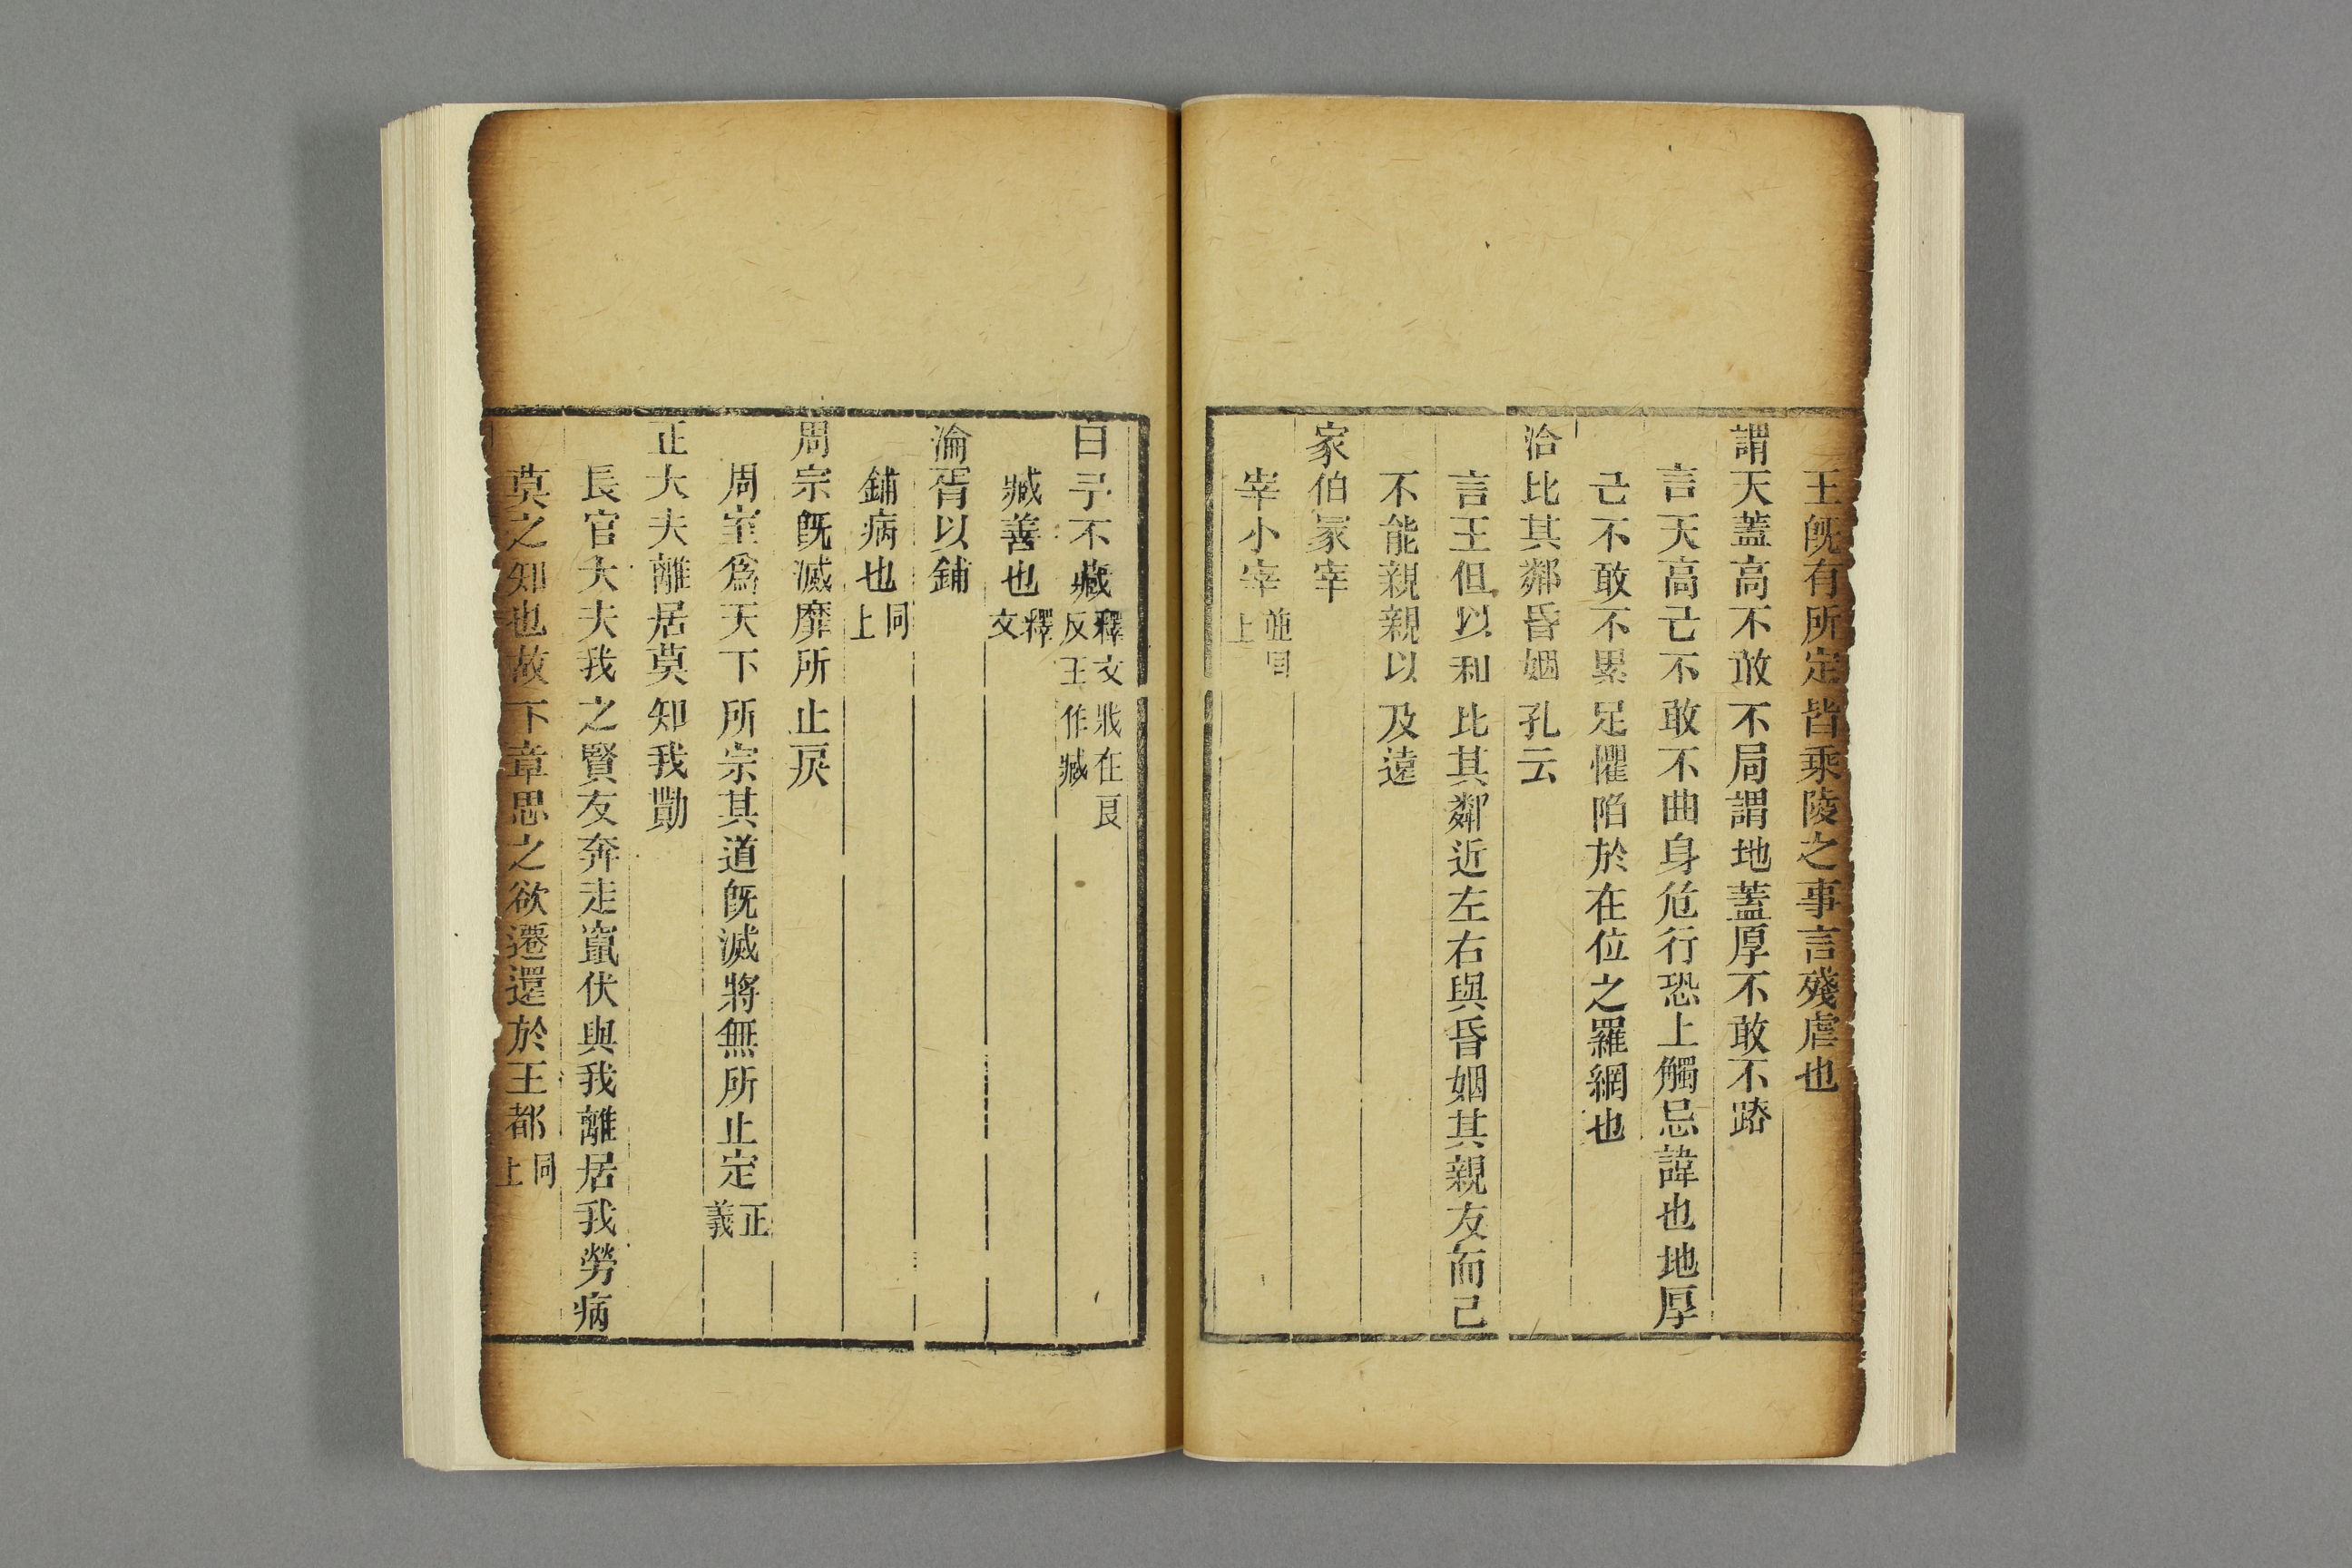 王旣有所定皆乘陵之事言殘虐也
謂天蓋高不敢不局謂地蓋厚不敢不蹐
言天高己不敢不曲身危行恐上觸忌諱也地厚
己不敢不累足懼陷於在位之羅網也
洽比其鄰昏姻孔云
言王但以和比其鄰近左右與昏姻其親友而已
不能親親以及遠
家伯冡宰
宰小宰並同上
曰予不臧釋文戕在良反王作臧
臧善也釋文
淪胥以鋪
鋪病也同上
周宗旣滅靡所止戾
周室爲天下所宗其道旣滅將無所止定正義
正大夫離居莫知我勩
長官大夫我之賢友奔走竄伏與我離居我勞病
莫之知也故下章思之欲遷還於王都同上